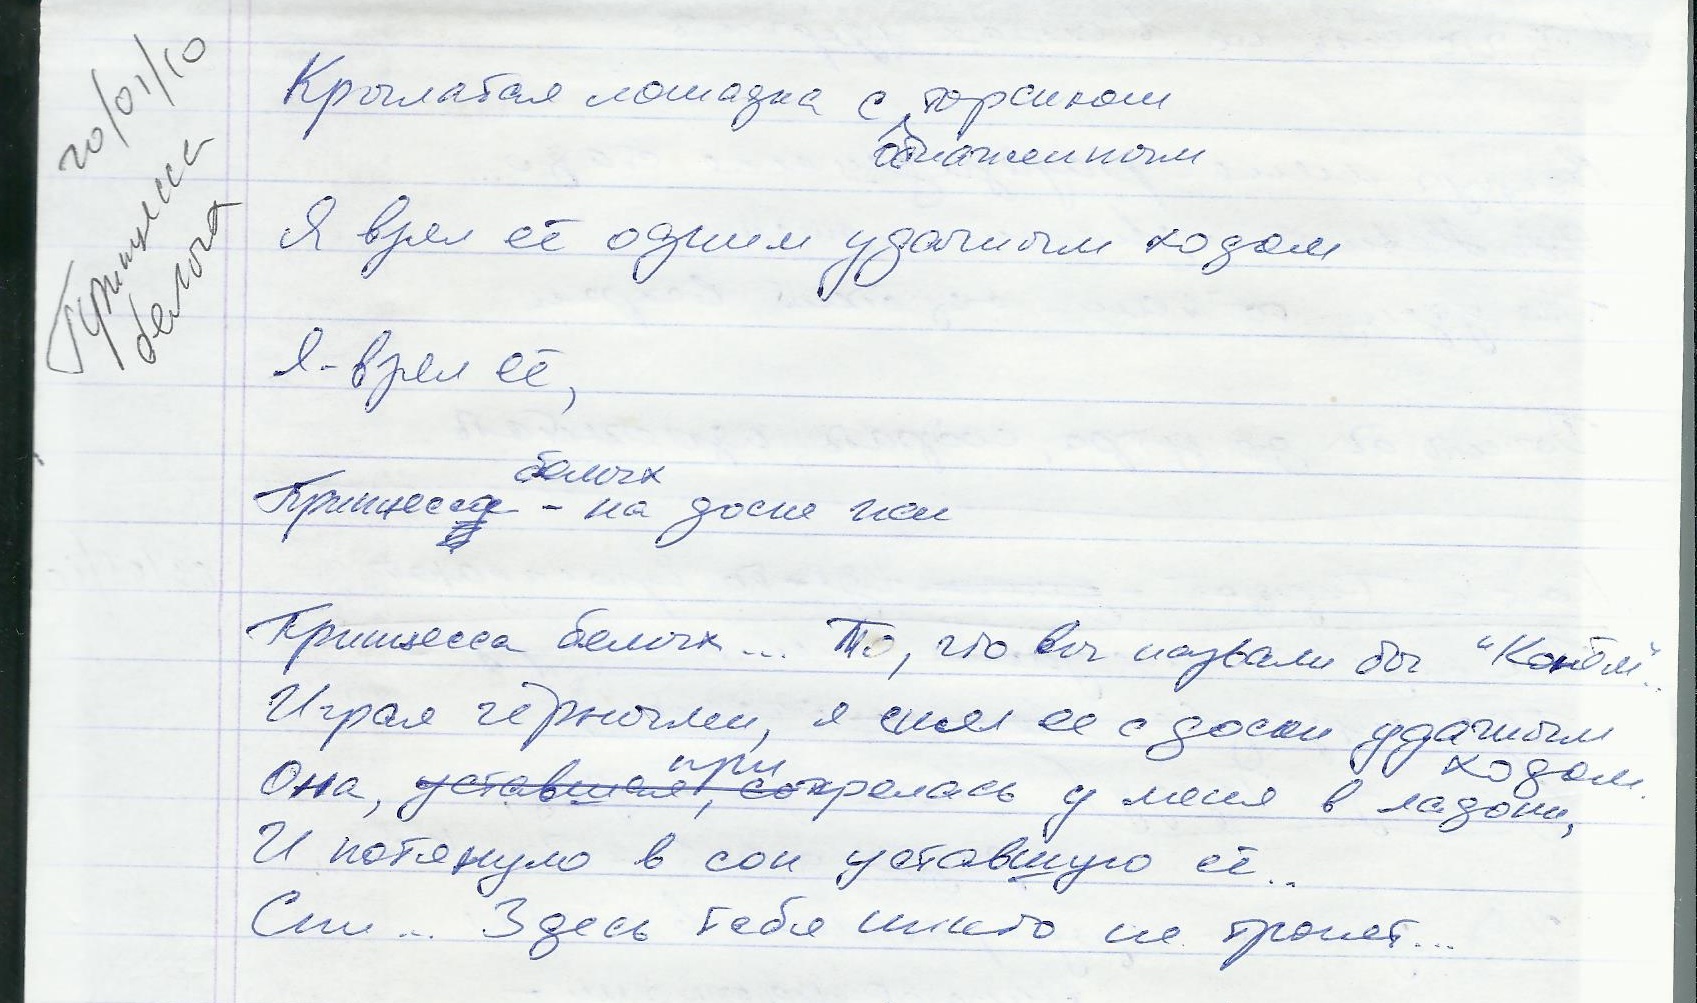 20/01/10
Принцесса
белых
Крылатая лошадка с торсиком
обнаженным
Я взял её одним удачным ходом
Я - взял её,
белых
Принцесса - на доске
Принцесса белых... То, что вы назвали бы "Конём"..
Играя чёрными, я снял ее с доски удачным
ходом.
при
Она, уставшая, сокралась у меня в ладони,
И потянуло в сон уставшую её..
Спи... Здесь тебя никто не тронет...